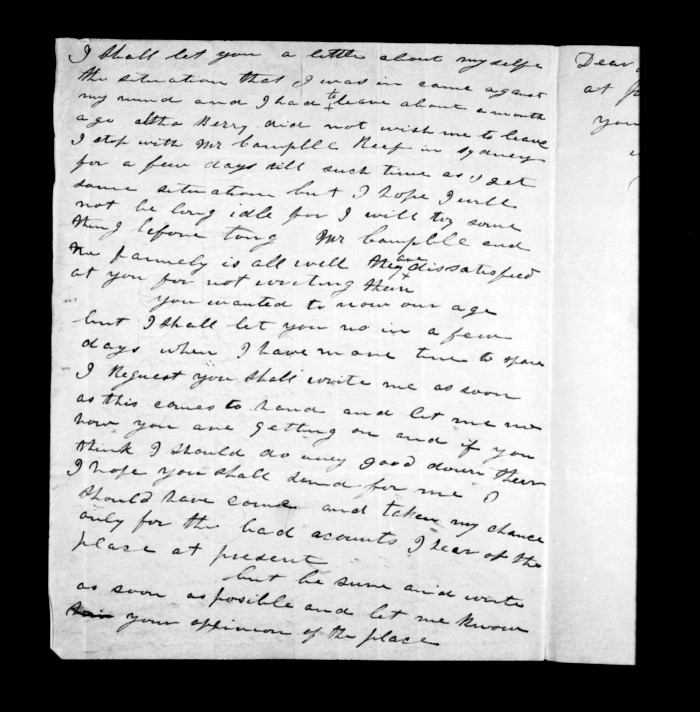 I Shall let you a little about my selfe
the situation that I was in came against
my mind and I had to leave about a month
ago altho Berry did not wish me to leave
I stop with Mr Campble Keef in Sydney
for a few days till such time as I get
some situation but I hope I will
not be long idle for I will try some
thing before long Mr Campble and
the famely is all well they are dissatisfied
at you for not writing them
you wanted to now our age
but I Shall let you no in a few
days when I have more time to spare
I Request you Shall write me as soon
as this comes to hand and let me no
how you are getting on and if you
think I should do any good down theer
I hope you shall send for me I
should have come and taken my chance
only for the bad acounts I hear of the
place at present
but be sure and write
as soon as posible and let me know
your oppinion of the place
Dear
at
you